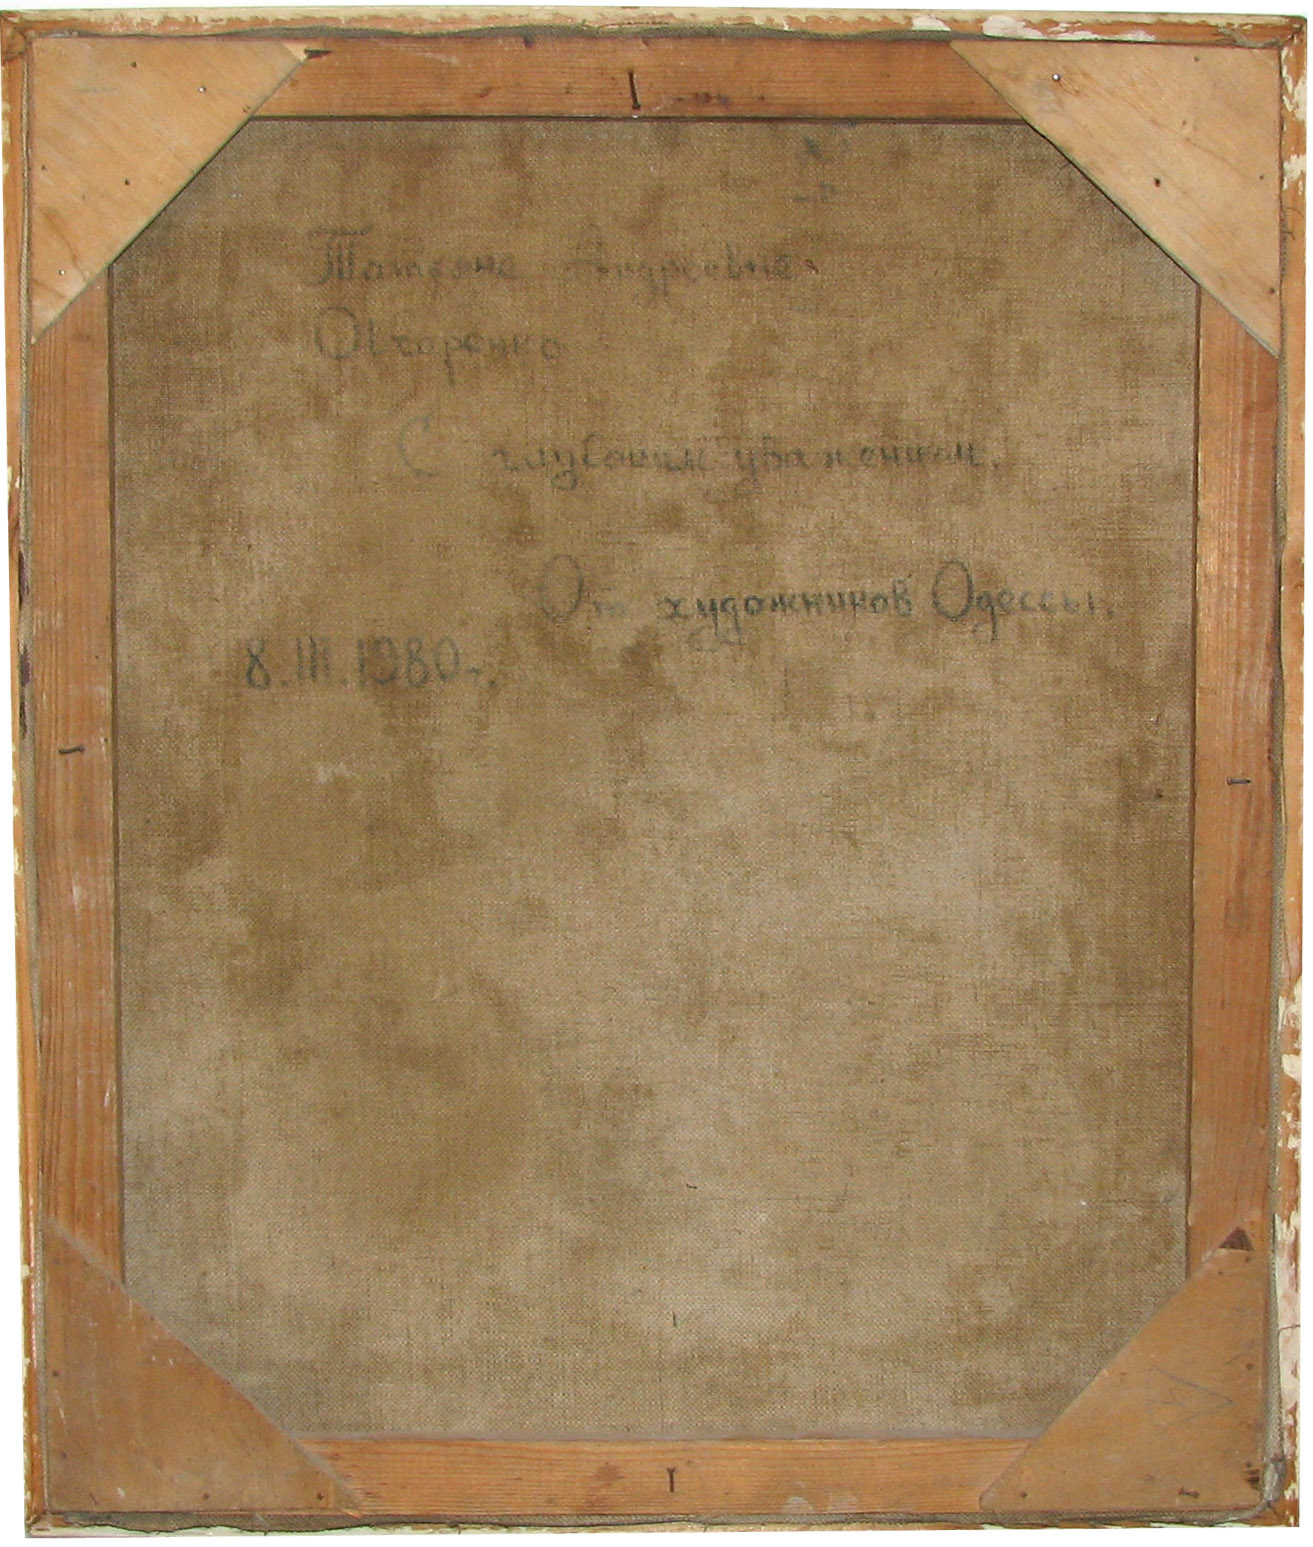 Татьяне Андреевне
Овчаренко
С глубоким уважением.
От художников Одессы.
8.III.1980г.